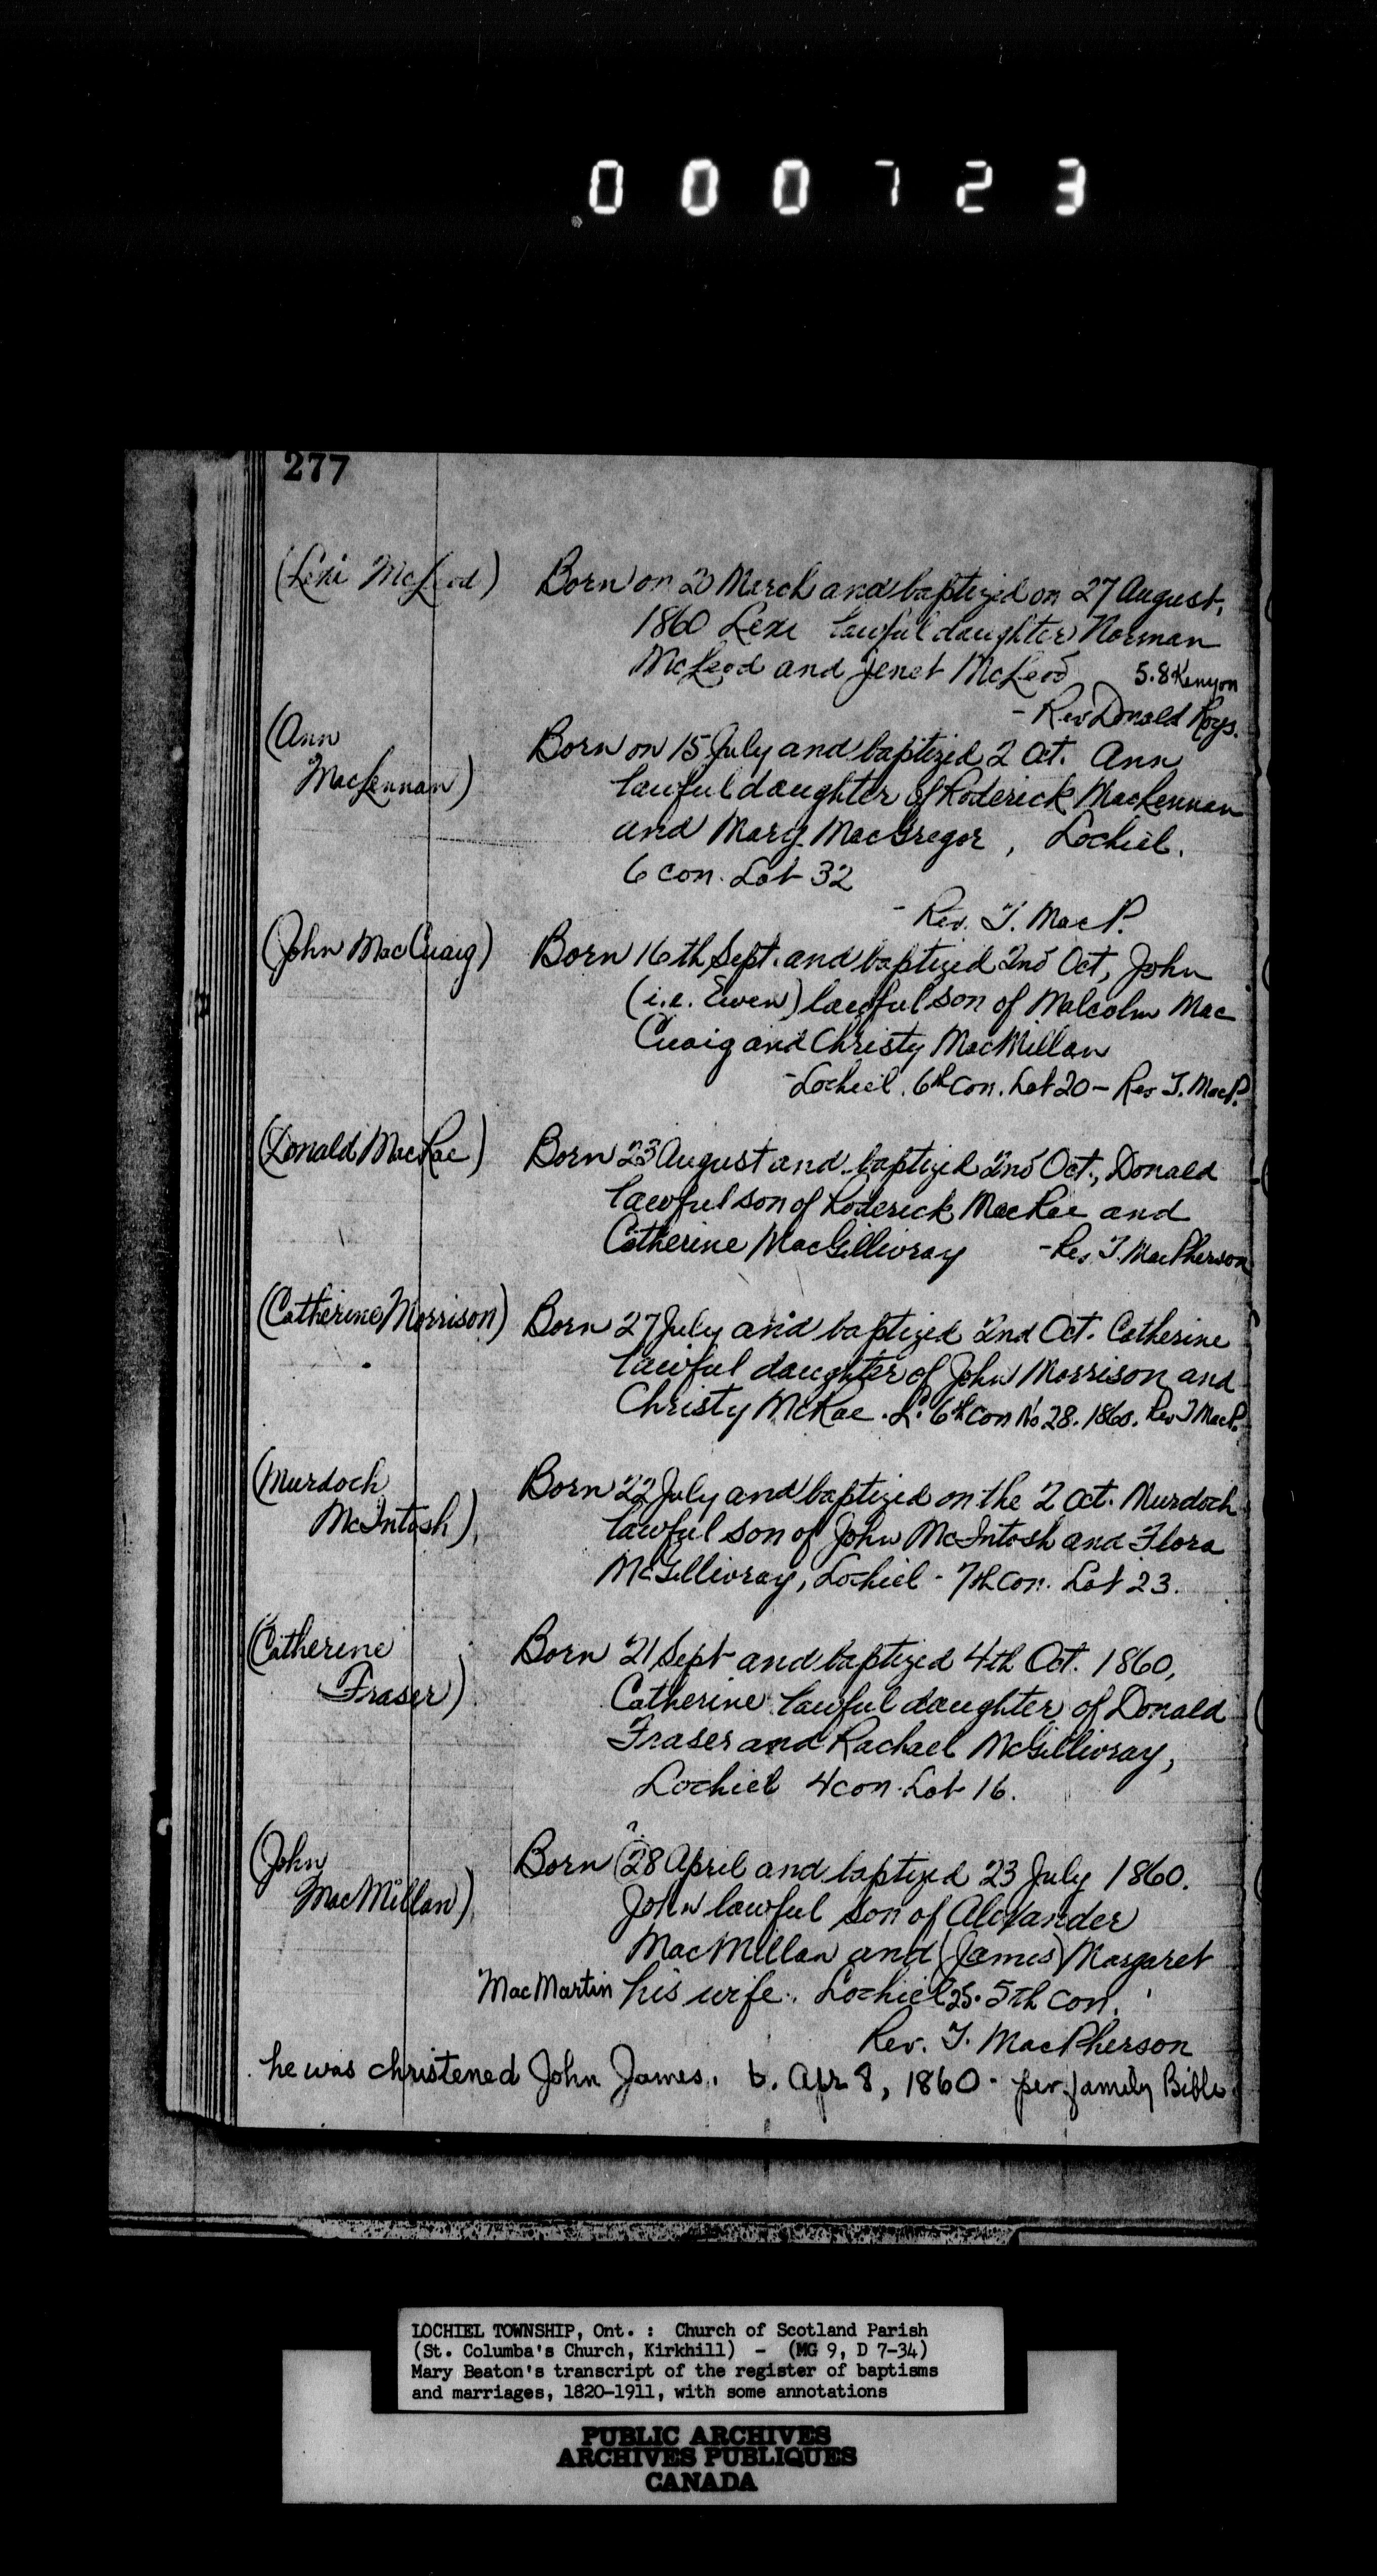 000723
277
(Lexi McLeod) Born on 20 March and baptized on 27 August,
1860 Lexi lawful daughter Norman
McLeod and Jenet McLeod 5.8 Kenyon
- Rev Donald Roys.
(Ann Born on 15 July and baptized 2 Oct. Ann
MacLennan) lawful daughter of Roderick MacLennan
and Mary MacGregor, Lochiel.
6 con. Lot 32
- Rev. T. MacP.
(John MacCuaig) Born 16th Sept. and baptized 2nd Oct, John
(i.e. Ewen) lawful son of Malcolm Mac
Cuaig and Christy MacMillan
- Lochiel. 6th con. Lot 20 - Rev T. MacP.
(Donald MacRae) Born 23 August and baptized 2nd Oct., Donald
lawful son of Roderick MacRae and
Catherine MacGillivray - Rev T. MacPherson
(Catherine Morrison) Born 27 July and baptized 2nd Oct. Catherine
lawful daughter of John Morrison and
Christy McRae. L. 6th con No 28. 1860. Rev T MacP.
(Murdoch Born 22 July and baptized on the 2 Oct. Murdoch
McIntosh) lawful son of John McIntosh and Flora
McGillivray, Lochiel - 7th con. Lot 23.
(Catherine Born 21 Sept and baptized 4th Oct. 1860,
Fraser) Catherine lawful daughter of Donald
Fraser and Rachael McGillivray,
Lochiel 4 con. Lot 16.
?
(John Born 28 April and baptized 23 July 1860.
MacMillan) John lawful son of Alexander
MacMillan and (James) Margaret
MacMartin his wife. Lochiel 25. 5th con.
Rev. T. MacPherson
he was christened John James. b. Apr 8, 1860 - per family Bible
LOCHIEL TOWNSHIP, Ont. : Church of Scotland Parish
(St. Columba's Church, Kirkhill) - (MG 9, D 7-34)
Mary Beaton's transcript of the register of baptisms
and marriages, 1820-1911, with some annotations
PUBLIC ARCHIVES
ARCHIVES PUBLIQUES
CANADA